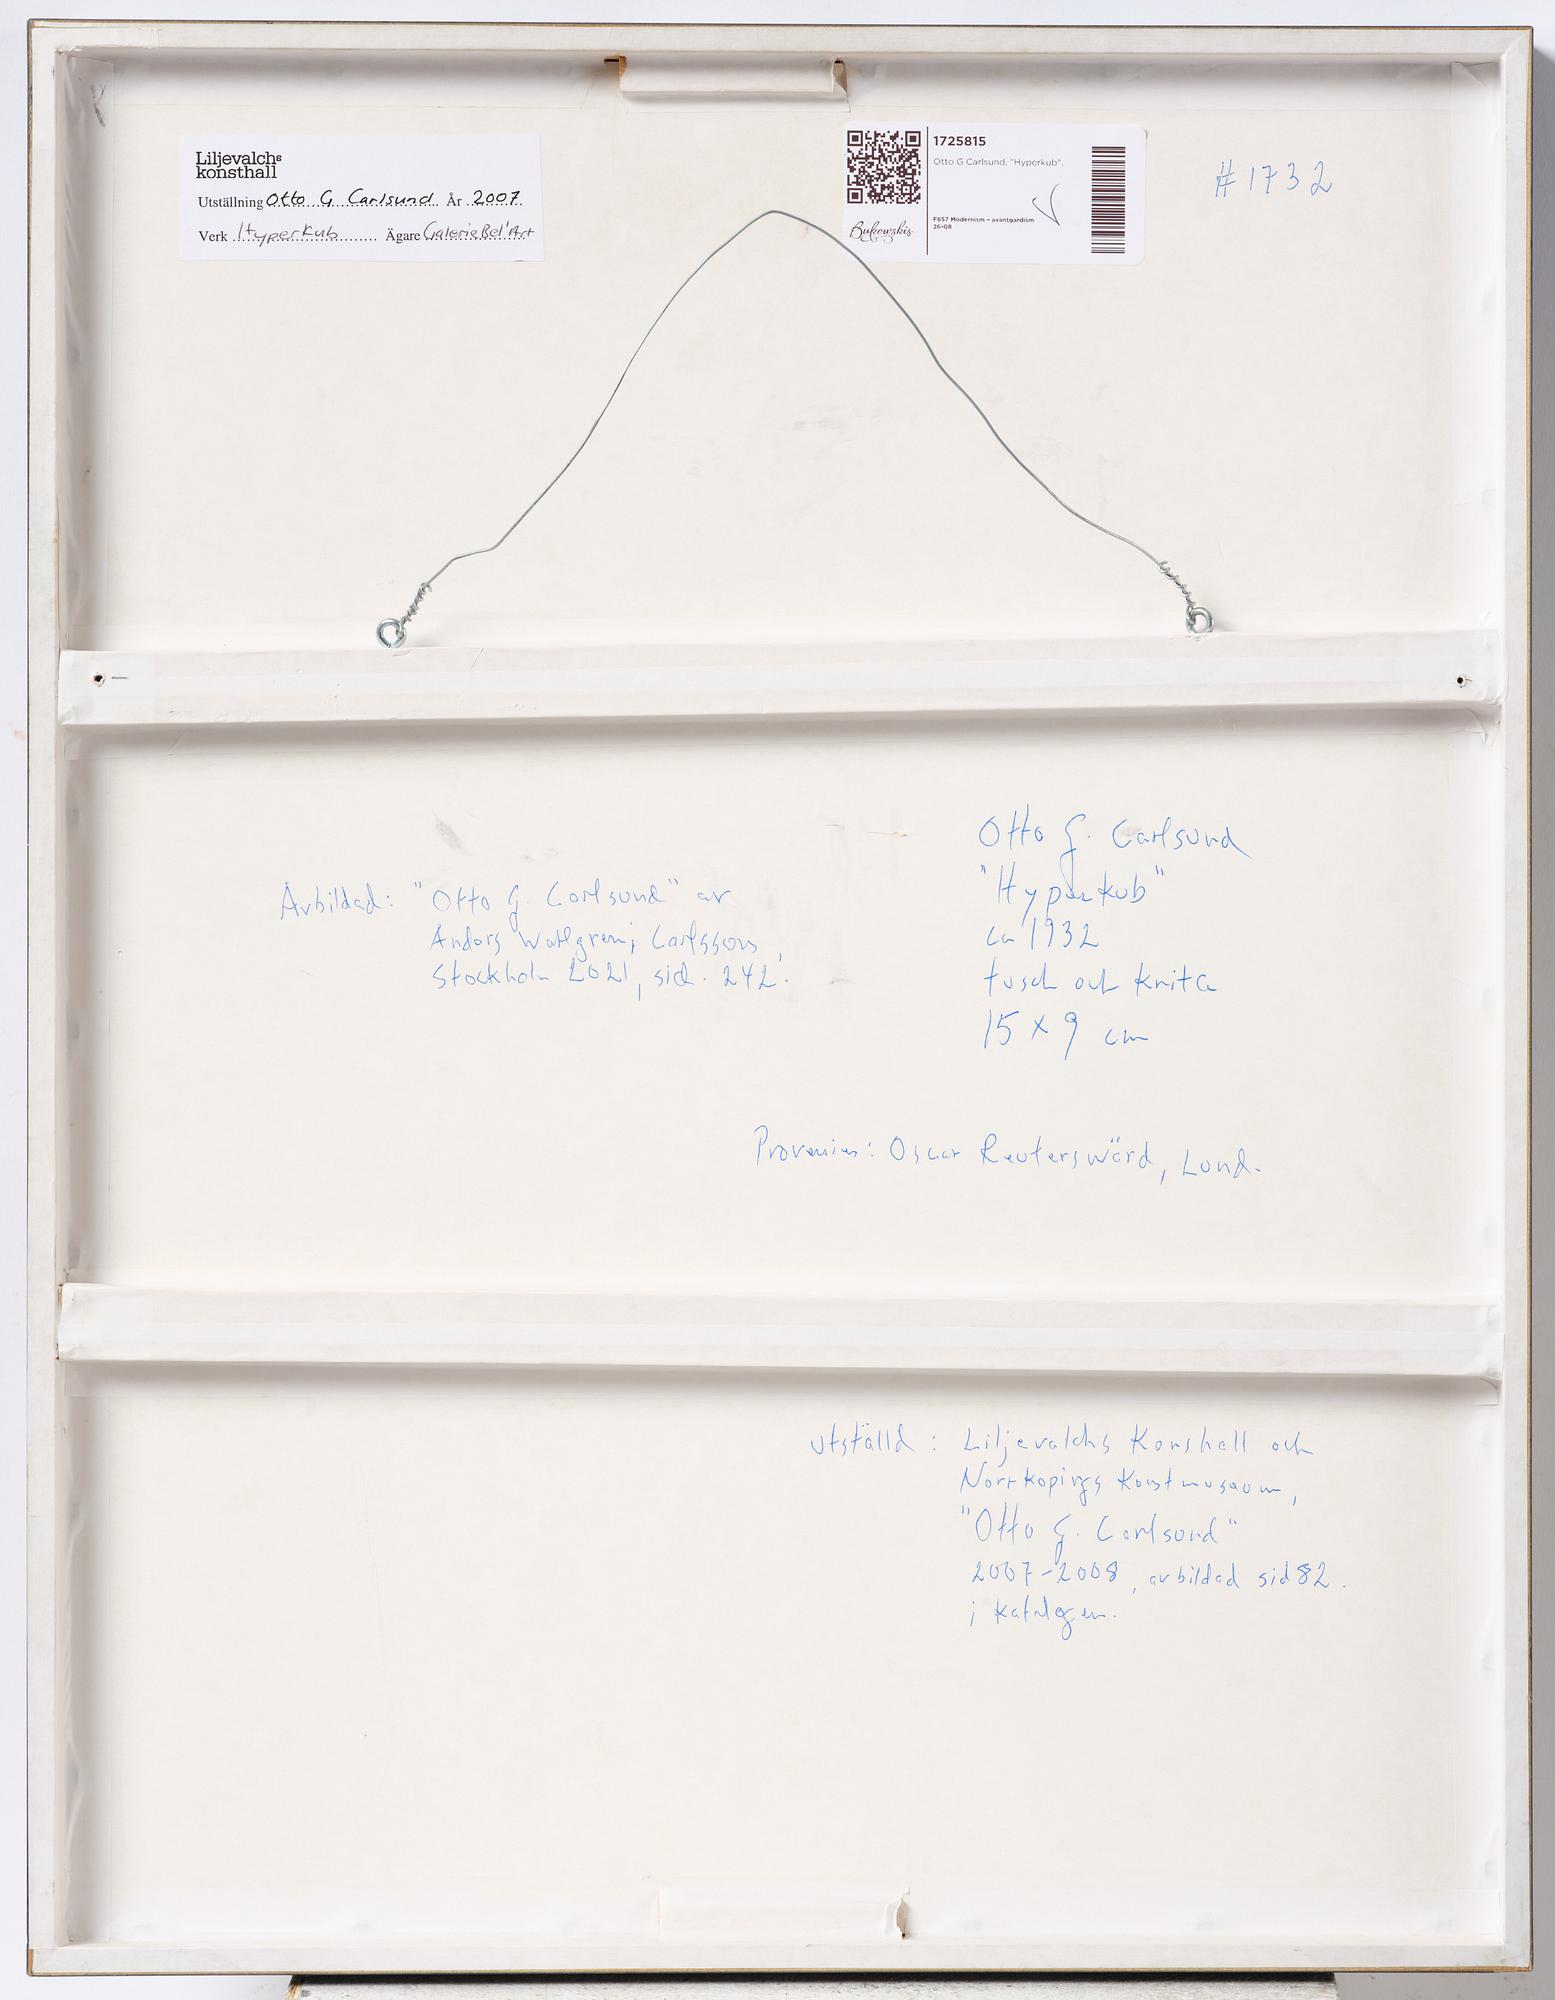 Liljevalchs
konsthall
Utställning Otto G Carlsund År 2007
Verk Hyperkub Ägare Galerie Bel'Art
1725815
Otto G Carlsund, "Hyperkub".
F857 Modernism – avantgardism
26-08
Bukowskis
#1732
Otto G. Carlsund
"Hyperkub"
ca 1932
tusch och krita
15 x 9 cm
Avbildad: "Otto G. Carlsund" av
Anders Wahlgren; Carlssons,
Stockholm 2021, sid. 242.
Proveniens: Oscar Reuterswärd, Lund.
utställd: Liljevalchs Konshall och
Norrkopings Konstmuseum,
"Otto G. Carlsund"
2007-2008, avbildad sid 82.
i katalogen.